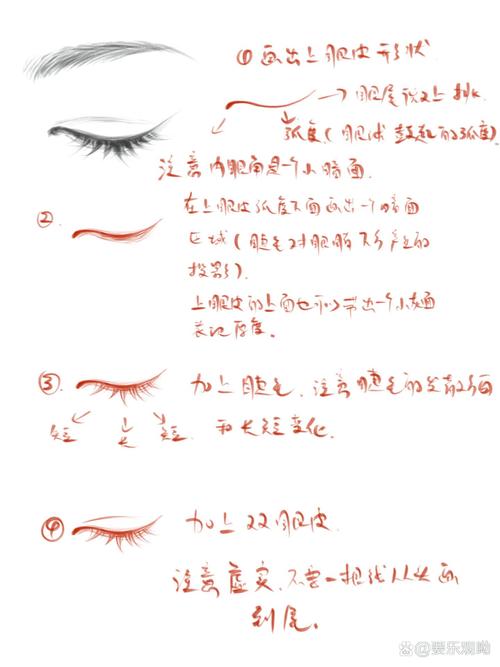 ① 画出上眼皮形状
→ 眼尾微上挑.
弧度(眼球鼓起的弧度)
注意内眼角是个小暗面.
②
在上眼皮弧度下面画出一个暗面
区域(睫毛对眼睛所产生的
投影).
上眼皮的上面也可以带出一个小灰面
表现厚度.
③ 加上睫毛.注意睫毛的发散方向
短 长 短. 和长短变化.
④ 加上双眼皮
注意虚实.不要一根线从头画
到尾.
百家号@要乐观呦